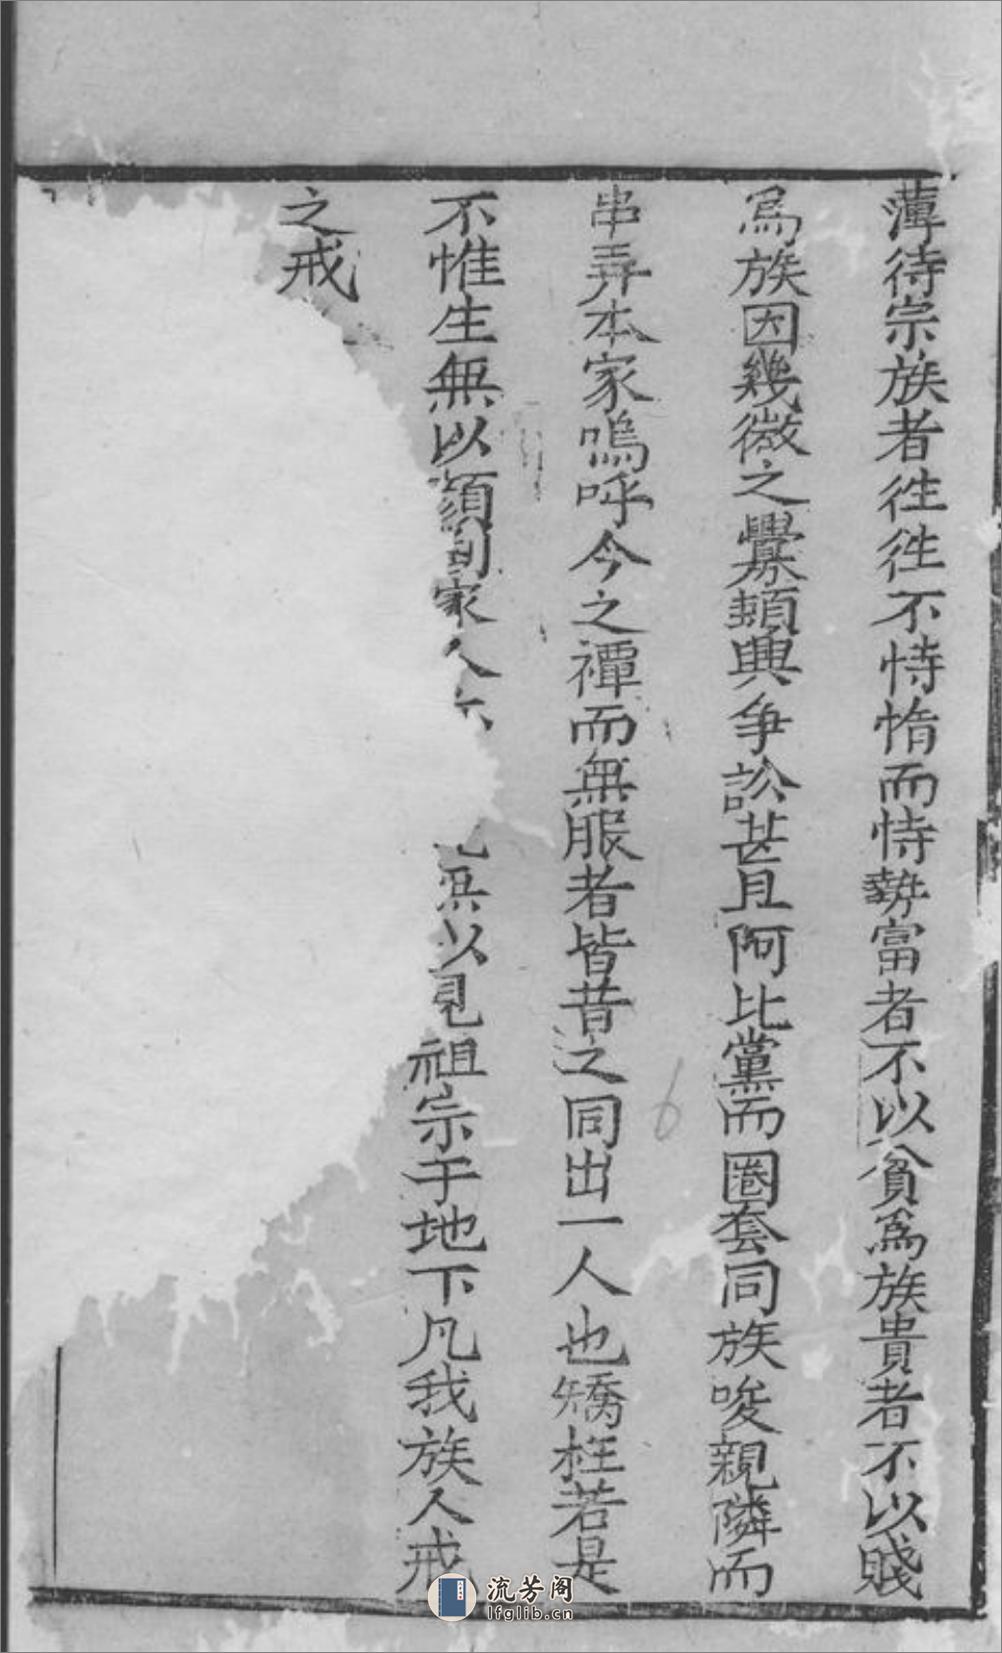 薄待宗族者徃徃不恃惰而恃勢富者不以貧爲族貴者不以賤
爲族因幾微之釁頼興爭訟甚且阿比黨而圈套同族唆親隣而
串弄本家嗚呼今之禫而無服者皆昔之同出一人也矯枉若是
不惟生無以顔間家人無以見祖宗于地下凡我族人戒
之戒
流芳阁
lfglib.cn